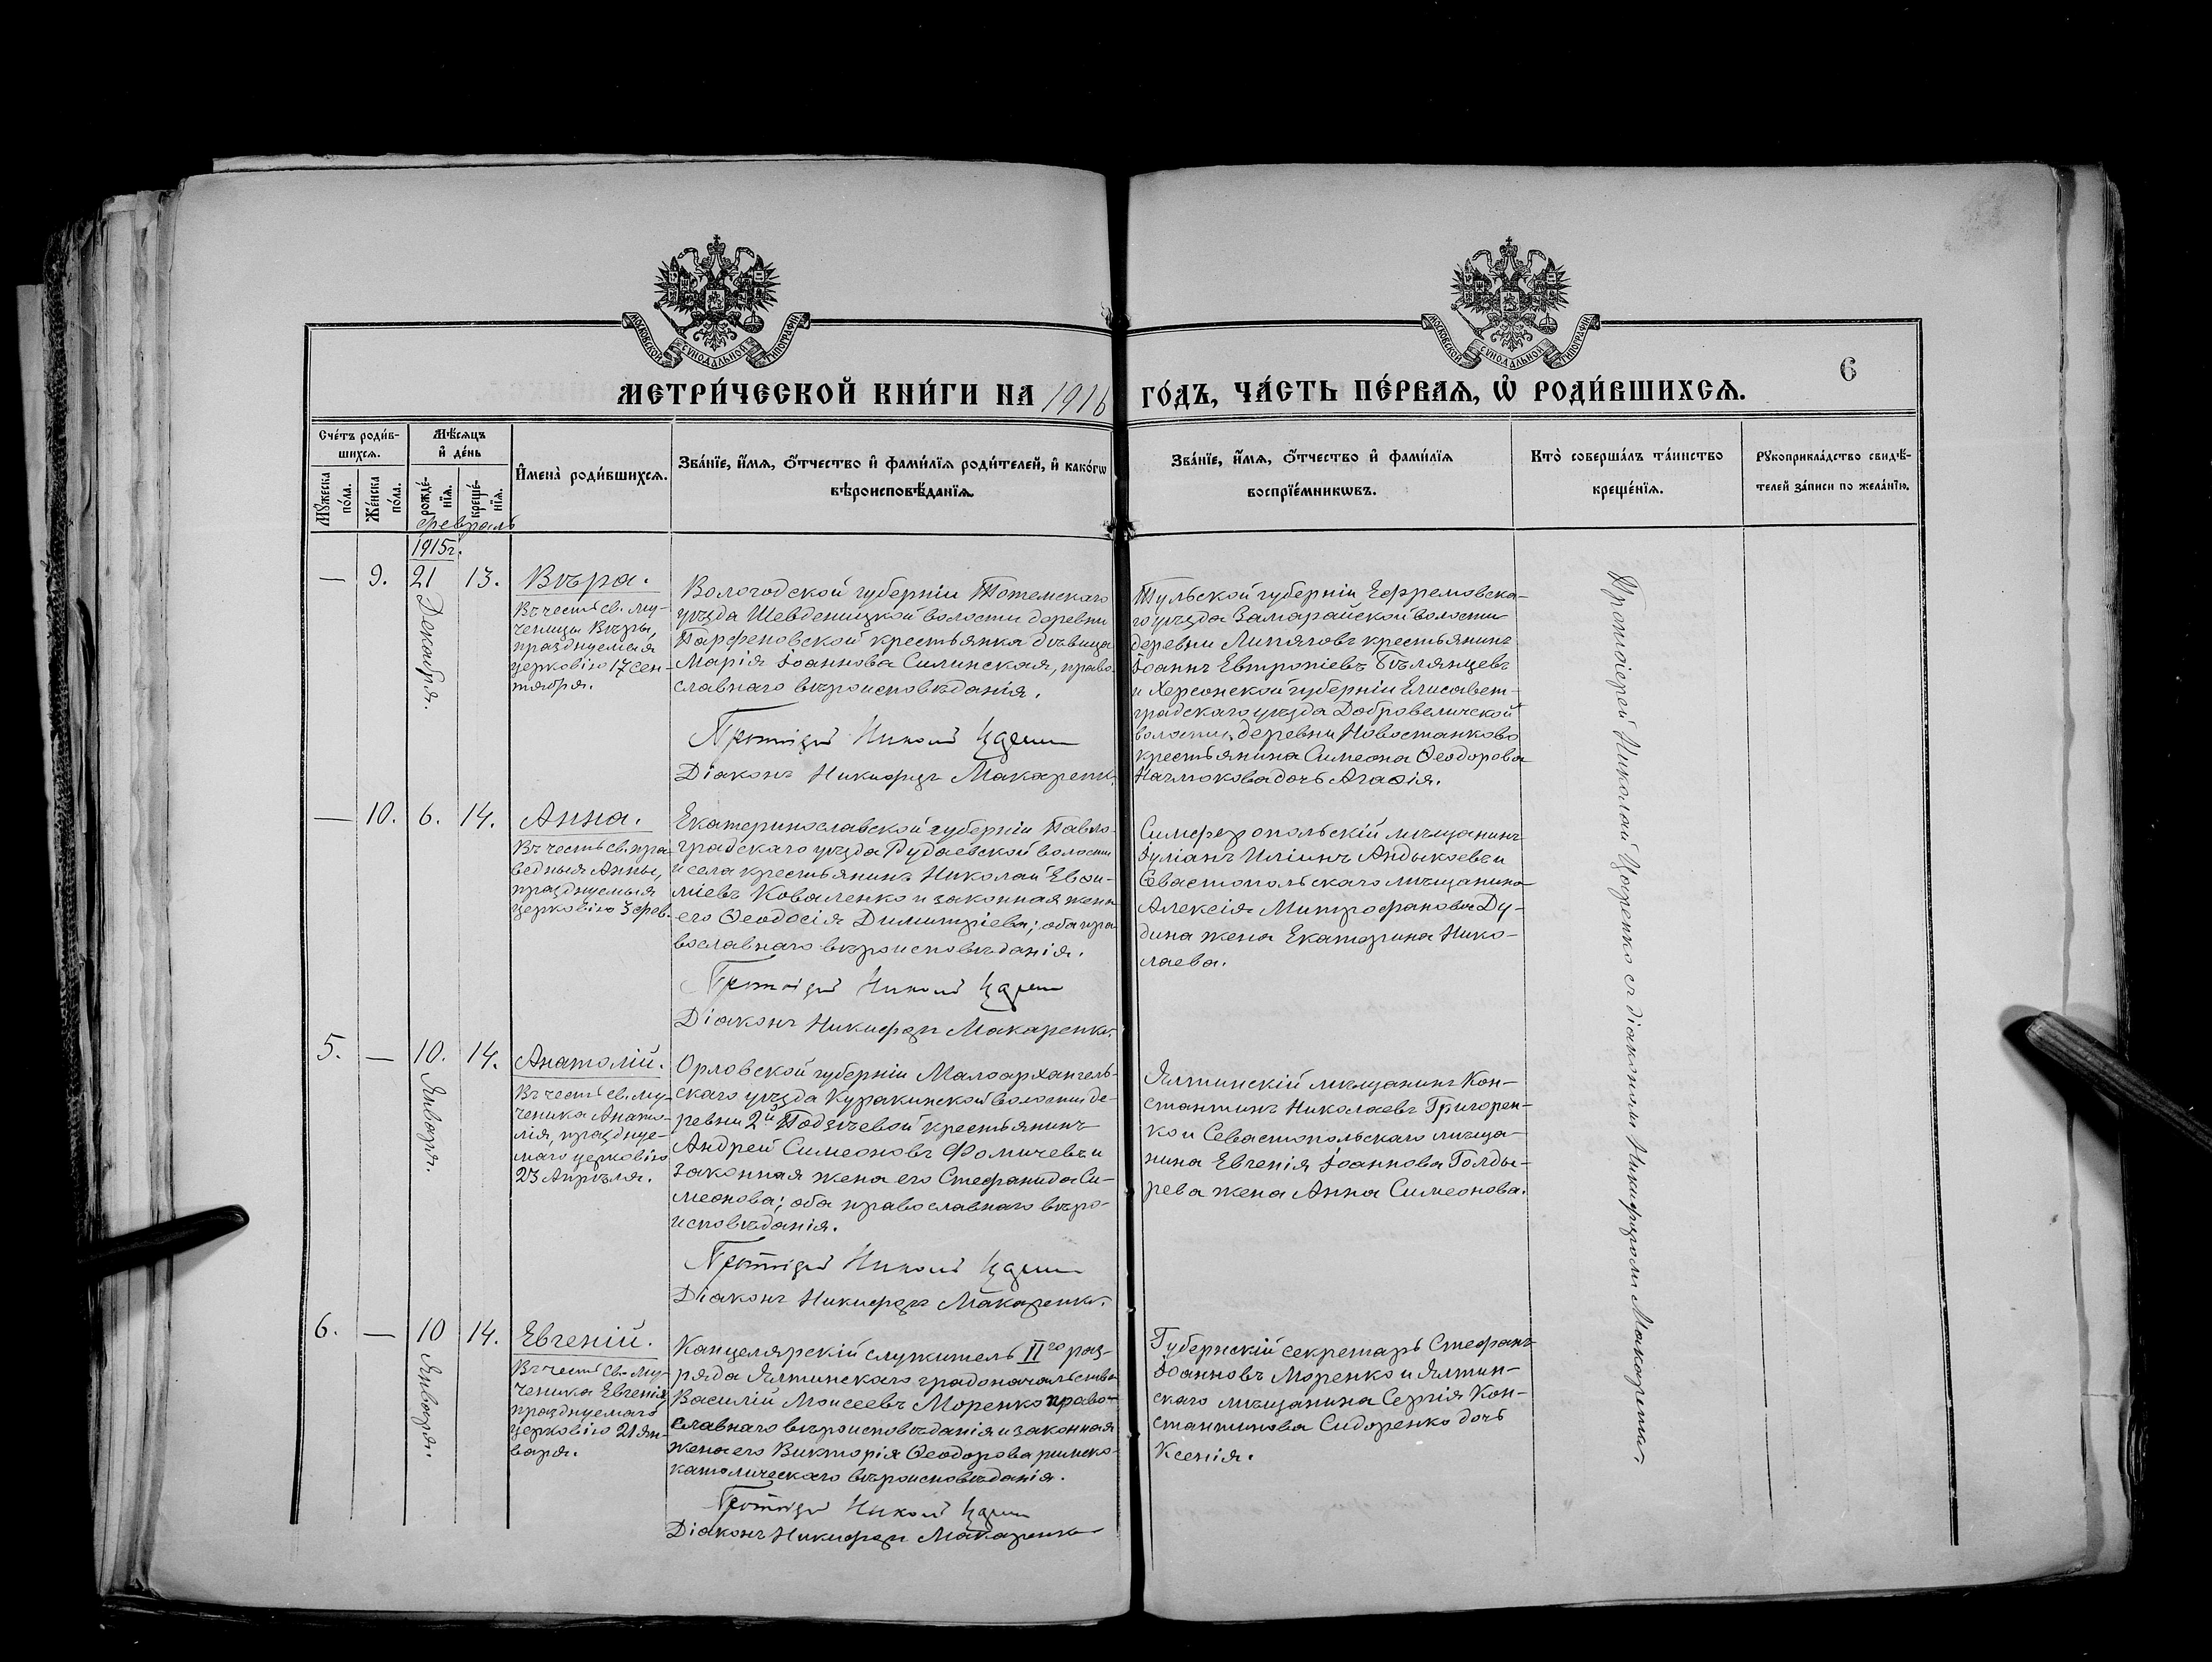 МОСКОВСКОЙ СѴНОДАЛЬНОЙ ТИПОГРАФІИ
МОСКОВСКОЙ СѴНОДАЛЬНОЙ ТИПОГРАФІИ
6
МЕТРИ́ЧЕСКОЙ КНИ́ГИ НА 1916 ГО́ДЪ, ЧА́СТЬ ПЕ́РВАѦ, Ѽ РОДИ́ВШИХСѦ.
Сче́тъ роди́в-
шихсѧ.
Мꙋ́жеска по́ла.
Же́нска по́ла.
Мѣ́сѧцъ
и҆ де́нь
рожде́-
нїѧ.
креще́-
нїѧ.
И҆мена̀ роди́вшихсѧ.
Зва́нїе, и҆́мѧ, ѻ҆́тчество и҆ фами́лїѧ роди́телей, и҆ како́гѡ
вѣроисповѣ́данїѧ.
Зва́нїе, и҆́мѧ, ѻ҆́тчество и҆ фами́лїѧ
воспрїе́мникѡвъ.
Кто̀ соверша́лъ та́инство
креще́нїѧ.
Рꙋкоприкла́дство свидѣ́-
телей за́писи по жела́нїю.
февраль
1915г.
— 9. 21 Декабря. 13. Вѣра.
Въ честь св. му-
ченицы Вѣры,
празднуемыя
церковію 17 сен-
тября.
Вологодской губерніи Тотемскаго
уѣзда Шевденицкой волости деревни
Парфеновской крестьянка дѣвица
Марія Іоаннова Силинская, право-
славнаго вѣроисповѣданія.
Протоіерей Николай
Діаконъ Никифоръ Макаренко.
Тульской губерніи Ефремовска-
го уѣзда Замарайской волости
деревни Липяговъ крестьянинъ
Іоаннъ Евтропіевъ Бѣлянцевъ
и Херсонской губерніи Елисавет-
градскаго уѣзда Добровеличской
волости, деревни Новостанково
крестьянина Симеона Ѳеодорова
дочь Агаѳія.
— 10. 6. 14. Анна.
Въ честь св. пра-
ведныя Анны,
празднуемыя
церковію 3 фев.
Екатеринославской губерніи Павло-
градскаго уѣзда Рудаевской волости
и села крестьянинъ Николай Евѳи-
міевъ Коваленко и законная жена
его Ѳеодосія Димитріева; оба пра-
вославнаго вѣроисповѣданія.
Протоіерей Николай
Діаконъ Никифоръ Макаренко.
Симферопольскій мѣщанинъ
Іуліанъ Иліинъ Андыкоевъ и
Севастопольскаго мѣщанина
Алексія Митрофанова Ду-
дина жена Екатерина Нико-
лаева.
5. — 10. Января. 14. Анатолій.
Въ честь св. му-
ченика Анато-
лія, праздnуе-
маго церковію
23 Апрѣля.
Орловской губерніи Малоархангель-
скаго уѣзда Куракинской волости де-
ревни 2й Подзѣевой крестьянинъ
Андрей Симеоновъ Фомичевъ и
законная жена его Стефанида Си-
меонова; оба православнаго вѣро-
исповѣданія.
Протоіерей Николай
Діаконъ Никифоръ Макаренко.
Ялтинскій мѣщанинъ Кон-
стантинъ Николаевъ Григорен-
ко и Севастопольскаго мѣща-
нина Евгенія Іоаннова Голды-
рева жена Анна Симеонова.
6. — 10 Января. 14. Евгеній.
Въ честь Св. Му-
ченика Евгенія,
празднуемаго
церковію 21 Ян-
варя.
Канцелярскій служитель IIго раз-
ряда Ялтинскаго градоначальства
Василій Моисеевъ Моренко право-
славнаго вѣроисповѣданія и законная
жена его Викторія Ѳеодорова римско-
католическаго вѣроисповѣданія.
Протоіерей Николай
Діаконъ Никифоръ Макаренко
Губернскій секретарь Стефанъ
Іоанновъ Моренко и Ялтин-
скаго мѣщанина Сергія Кон-
стантинова Сидоренко дочь
Ксенія.
Протоіерей Николай Царенко съ діакономъ Никифоромъ Макаренко